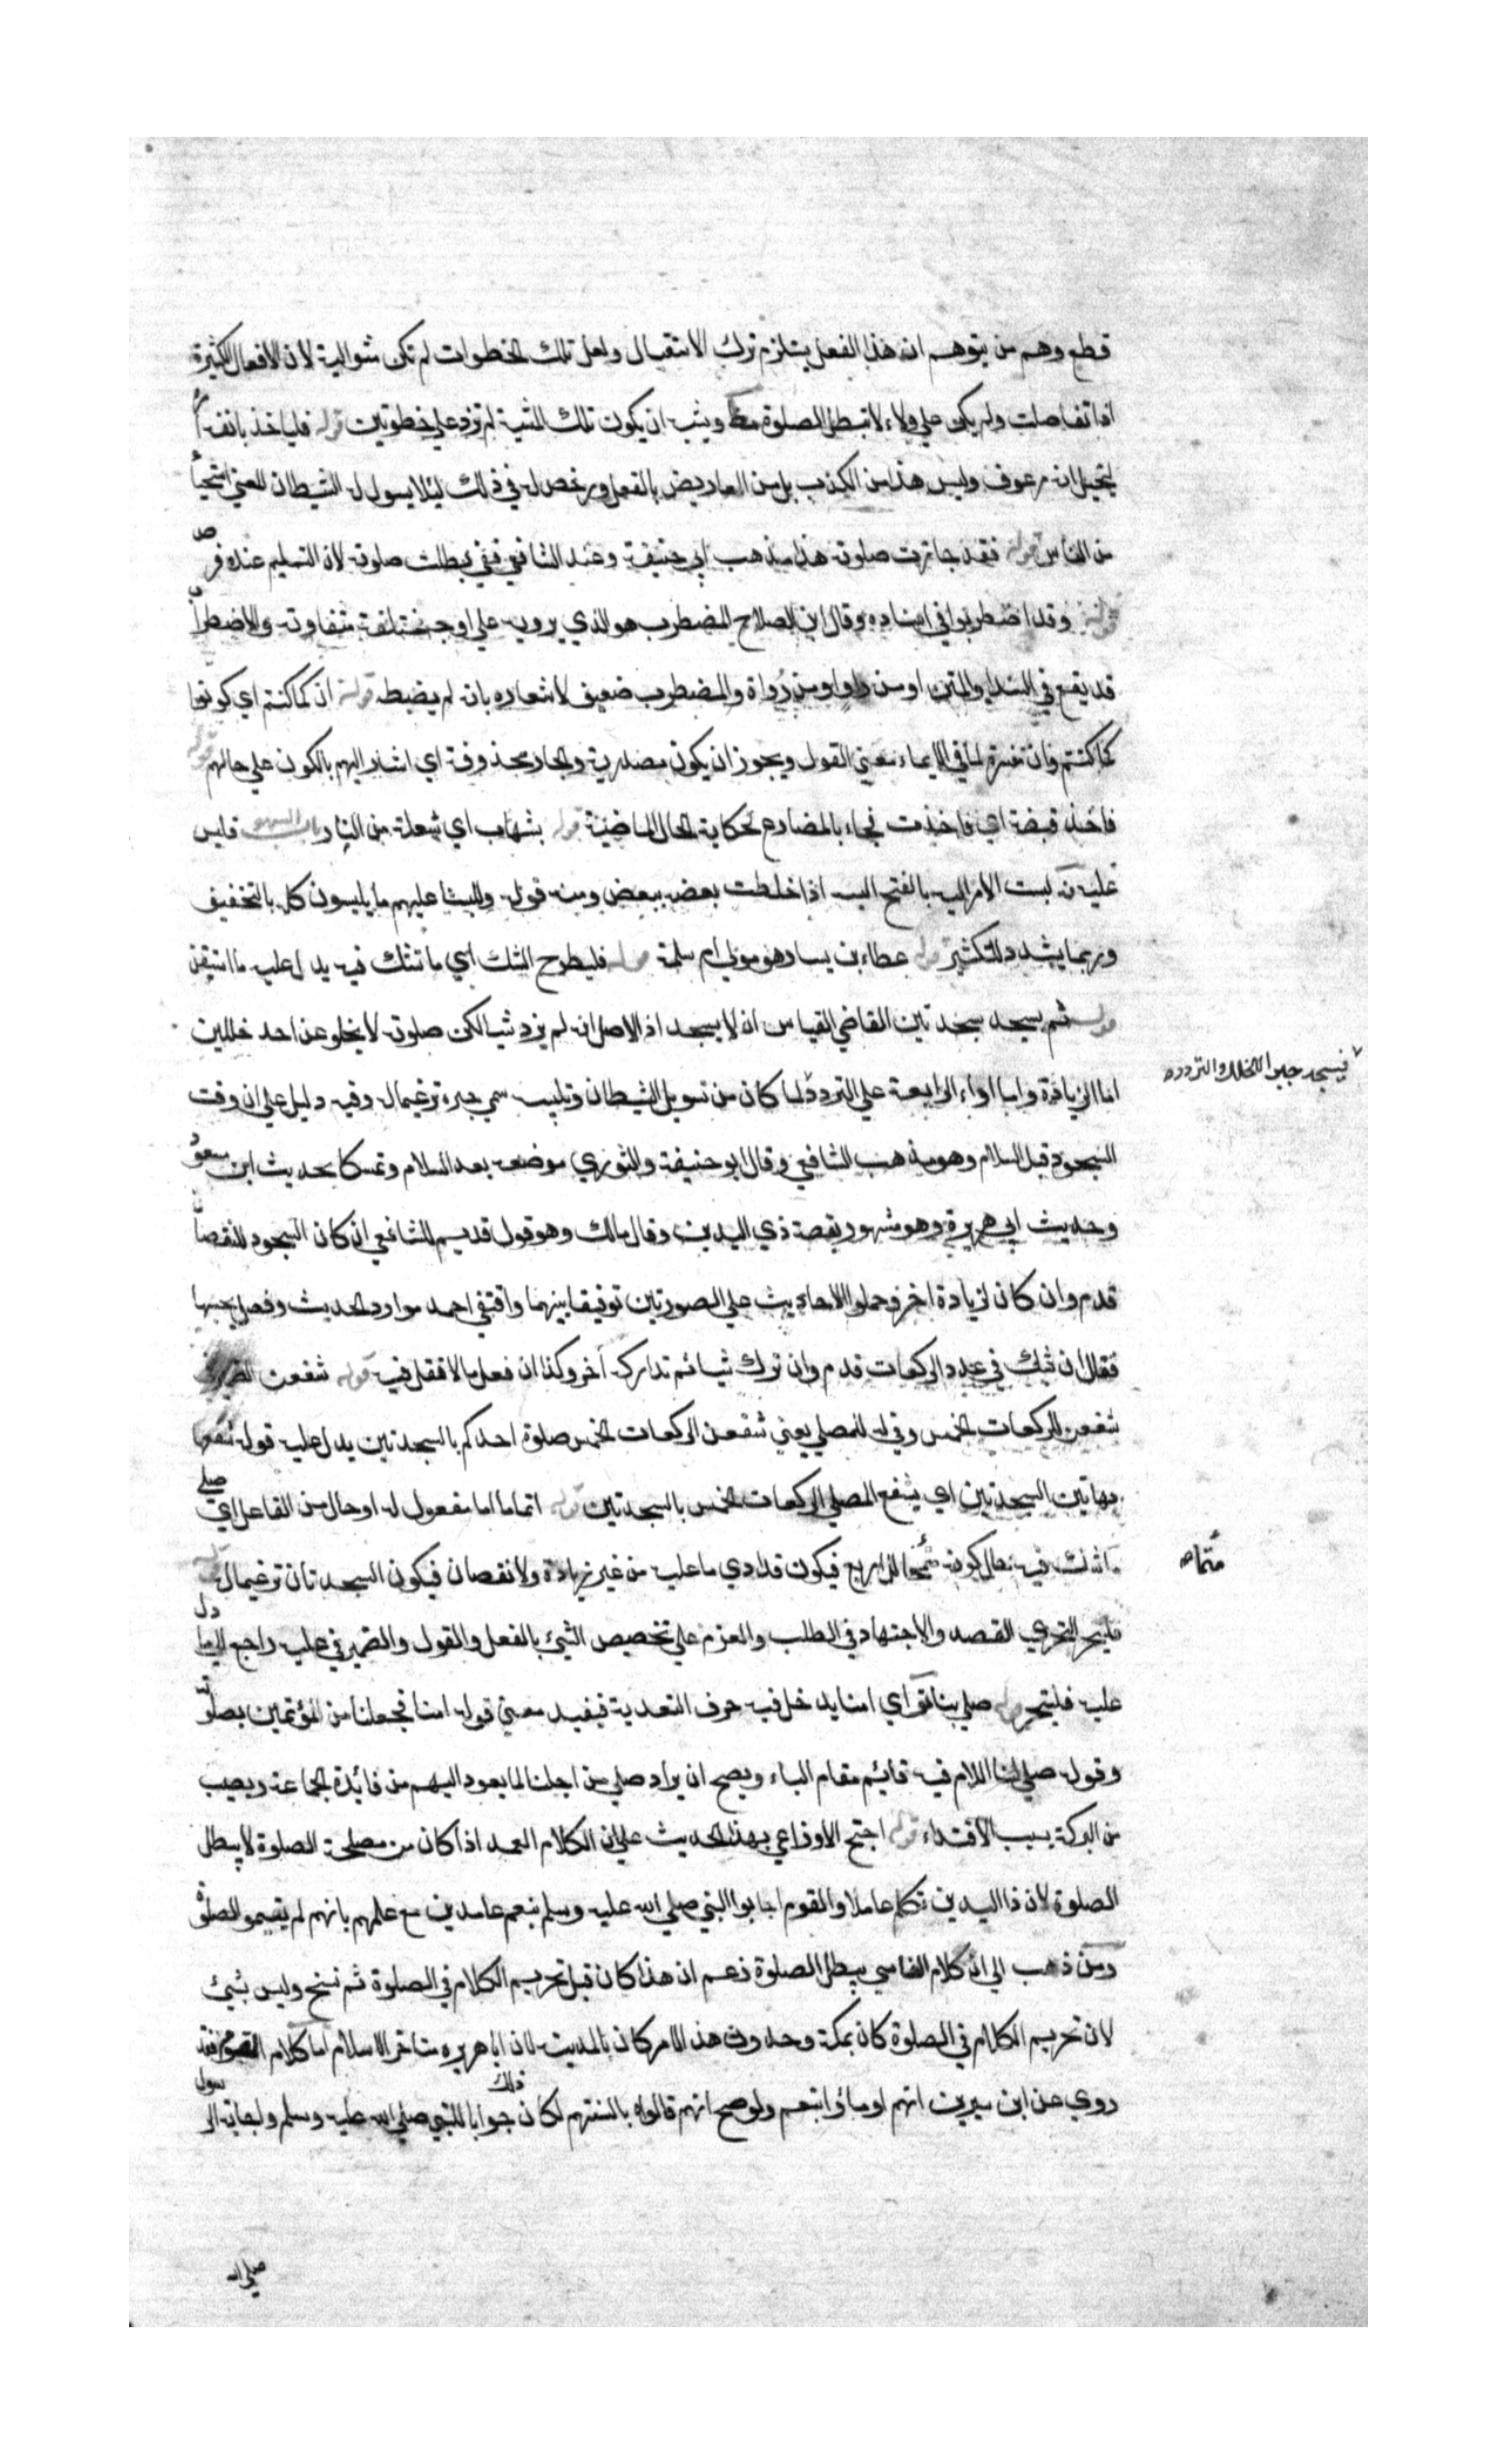 قطع وهم من يتوهم ان هذا الفعل يستلزم ترك الاستقبال ولعل تلك الخطوات لم تكن متوالية لان الافعال الكثيرة
اذا تفاصلت ولم يكن علي ولاء لا تبطل الصلوة ويشبه ان يكون تلك المشية لم تزد علي خطوتين قوله فلياخذ بانفه
ليخيل انه مرعوف وليس هذا من الكذب بل من المعاريض بالفعل ورخص له في ذلك ليلا يسول له الشيطان المعني استحيا
من الناس قوله فقد جازت صلوته هذا مذهب ابي حنيفة وعند الشافعي بطلت صلوته لان التسليم عنده فرض
قوله وقد اضطربوا في اسناده وقال ابن الصلاح المضطرب هو الذي يروي علي اوجه مختلفة متفاوتة والاضطراب
قد يقع في السند او المتن او من راو او من رواة والمضطرب ضعيف لاشعاره بانه لم يضبط قوله ان كما كنتم اي كونوا
كما كنتم وان مفسرة لما في الايماء معني القول ويجوز ان يكون مصدرية والجار محذوفة اي اشار اليهم بالكون علي حالهم قوله
فاخذ قبضة اي فاخذت فجاء بالمضارع لحكاية الحال الماضية قوله بشهاب اي شعلة من النار باب السهو فلبس
عليه نه لبست الامر البسه بالفتح البسه اذا خلطت بعضه ببعض ومنه قوله وللبسنا عليهم ما يلبسون كله بالتخفيف
وربما يشدد للتكثير قوله عطاء بن يسار هو مولي ام سلمة قوله فليطرح الشك اي ما شك فيه يدل عليه ما استيقن
قوله ثم يسجد سجدتين القاضي القياس ان لا يسجد اذ الاصل انه لم يزد شيا لكن صلوته لا يخلو عن احد خللين
فيسجد جبرا للخلل والتردد
اما الزيادة واما اداء الرابعة علي التردد لما كان من تسويل الشيطان وتلبيسه سمي جبره ترغيما له وفيه دليل علي ان وقت
السجود قبل السلام وهو مذهب الشافعي وقال ابو حنيفة والثوري موضعه بعد السلام وتمسكا بحديث ابن مسعود
وحديث ابي هريرة وهو مشهور بقصة ذي اليدين وقال مالك وهو قول قديم للشافعي ان كان السجود للنقصان
قدم وان كان لزيادة اخر وحملوا الاحاديث علي الصورتين توفيقا بينهما واقتفي احمد موارد الحديث وفصل بحسبها
فقال ان شك في عدد الركعات قدم وان ترك شيا ثم تداركه اخر وكذا ان فعل ما لا فيه قوله شفعن
شفعن للركعات الخمس وفي له للمصلي يعني شفعن الركعات الخمس صلوة احدكم بالسجدتين يدل عليه قوله شفعها
بهاتين السجدتين اي يشفع المصلي الركعات الخمس بالسجدتين قوله اتماما اما مفعول له او حال من الفاعل اي صلي
متما
ما شك فيه حال كونه متمما للاربع فيكون قد ادي ما عليه من غير زيادة ولا نقصان فيكون السجدتان ترغيما له قوله
فليتحر التحري القصد والاجتهاد في الطلب والعزم علي تخصيص الشيئ بالفعل والقول والضمير في عليه راجع الي ما دل
عليه فليتحر قوله صلي بنا اي امنا يدخل فيه حرف التعدية فيفيد معني قوله امنا فجعلنا من المؤتمين بصلوته
وقوله صلي لنا اللام فيه قائم مقام الباء ويصح ان يراد صلي من اجلنا لما يعود اليهم من فائدة الجماعة ويصيب
من البركة بسبب الاقتداء قوله احتج الاوزاعي بهذا الحديث علي ان الكلام العمد اذا كان من مصلحة الصلوة لا يبطل
الصلوة لان ذا اليدين تكلم عامدا والقوم اجابوا النبي صلي الله عليه وسلم بنعم عامدين مع علمهم بانهم لم يتموا الصلوة
ومن ذهب الي ان كلام الناسي يبطل الصلوة زعم ان هذا كان قبل تحريم الكلام في الصلوة ثم نسخ وليس بشيئ
لان تحريم الكلام في الصلوة كان بمكة وحدوث هذا الامر كان بالمدينة لان ابا هريره متاخر الاسلام اما كلام القوم فقد
روي عن ابن سيرين انهم اومأوا بنعم ولو صح انهم قالواه بالسنتهم لكان ذلك جوابا للنبي صلي الله عليه وسلم واجابة الرسول
صلي الله